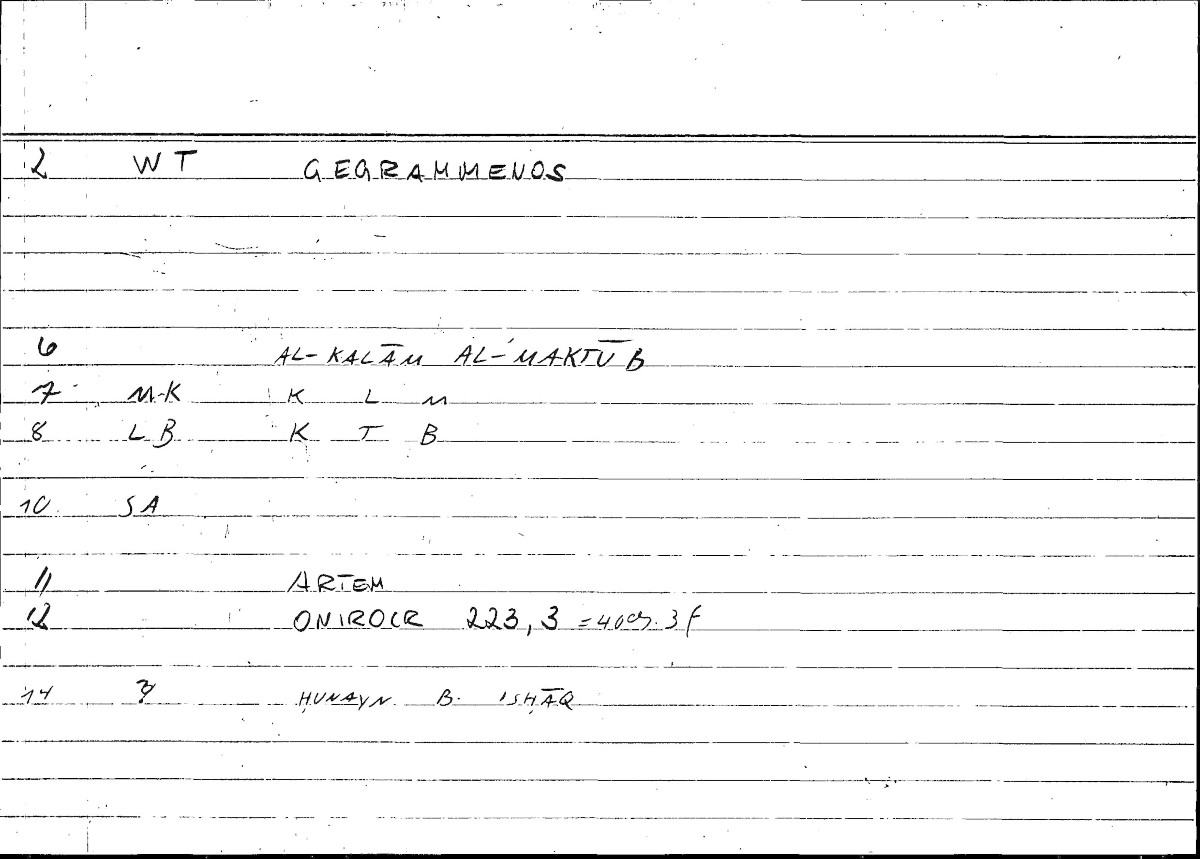 2 WT GEGRAMMENOS
6 AL-KALĀM AL-MAKTŪB
7 M-K K L M
8 LB K T B
10 SA
11 ARTEM
12 ONIROCR 223, 3
14 ? ḤUNAYN B. ISḤĀQ